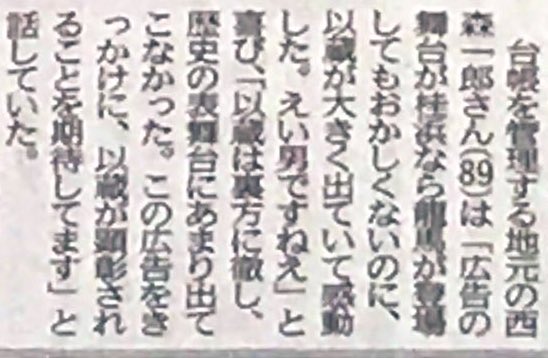 台帳を管理する地元の西
森一郎さん(89)は「広告の
舞台が桂浜なら龍馬が登場
してもおかしくないのに、
以蔵が大きく出ていて感動
した。えい男ですねえ」と
喜び、「以蔵は裏方に徹し、
歴史の表舞台にあまり出て
こなかった。この広告をき
っかけに、以蔵が顕彰され
ることを期待してます」と
話していた。